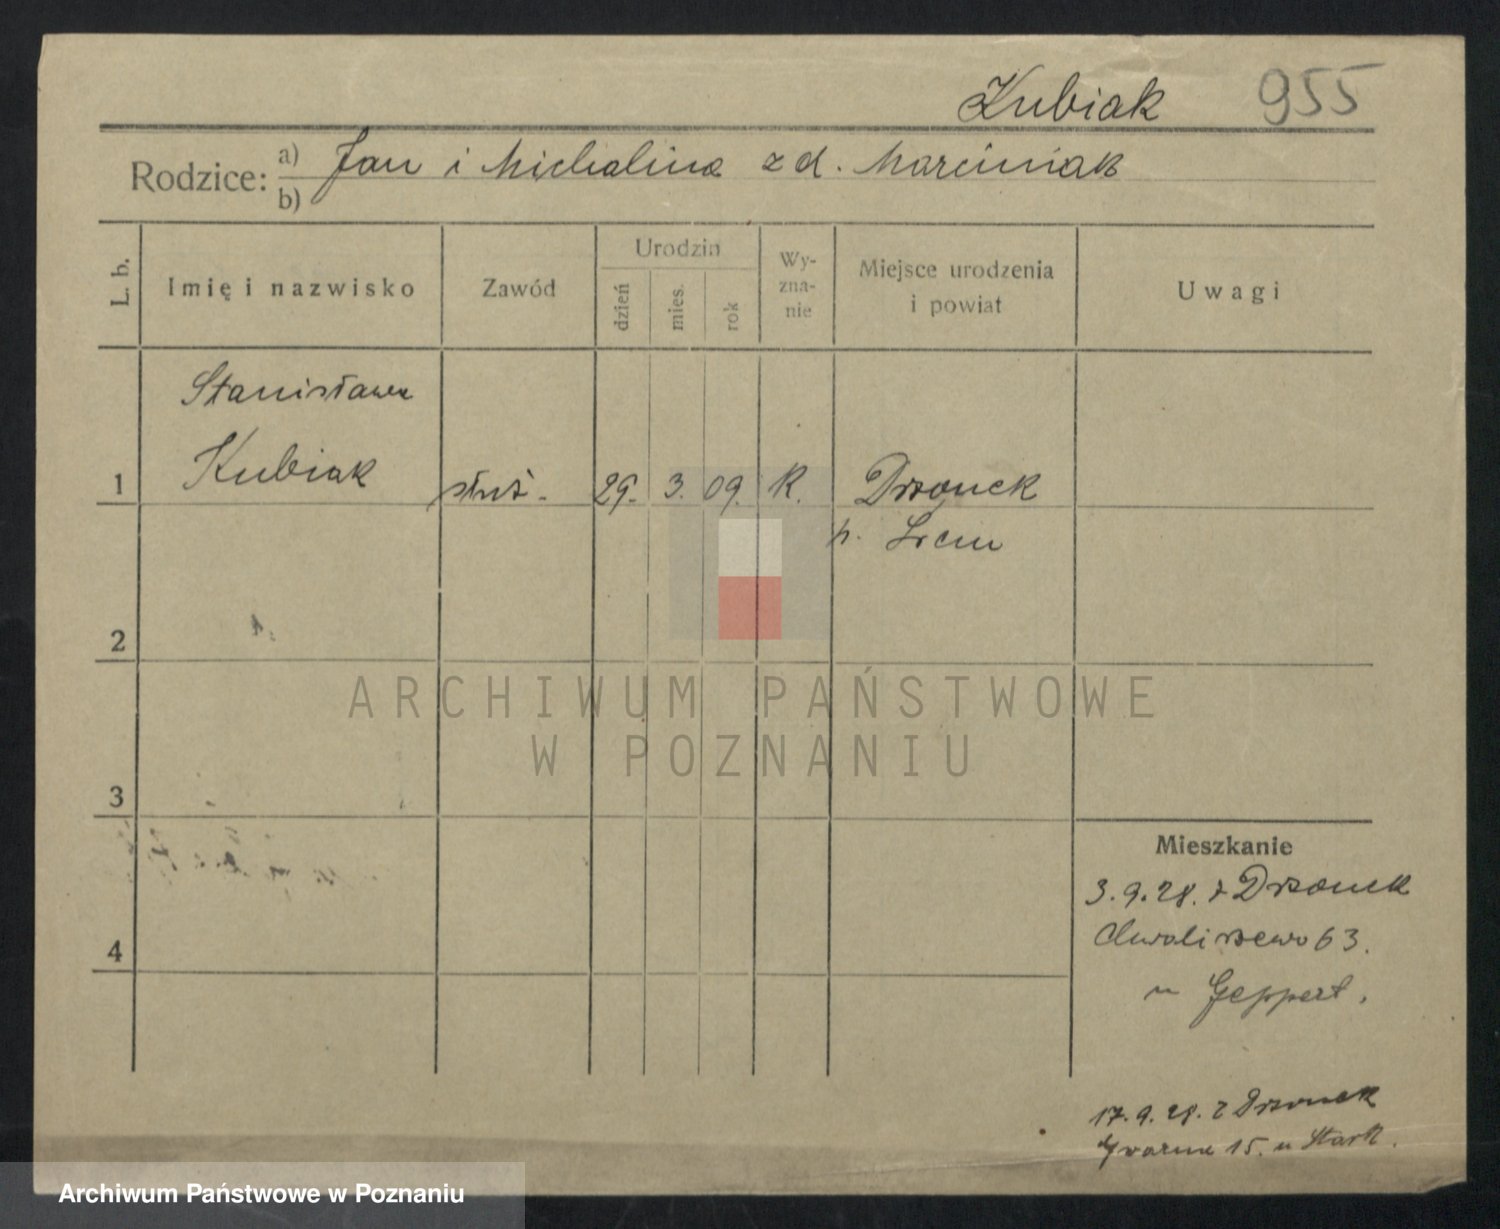 Kubiak 955
Rodzice: a) Jan i Michalina z d. Marciniak
b)
L. b.
Imię i nazwisko
Zawód
Urodzin
dzień
mies.
rok
Wy-
zna-
nie
Miejsce urodzenia
i powiat
Uwagi
Stanisława
1 Kubiak służ. 29. 3. 09. K. Drzonek
p. Śrem
2
ARCHIWUM PAŃSTWOWE
W POZNANIU
3
4
Mieszkanie
3.9.28. z Drzonek
Chwaliszewo 63.
u Geppert.
17.9.28. z Drzonek
15. u Stark.
Archiwum Państwowe w Poznaniu